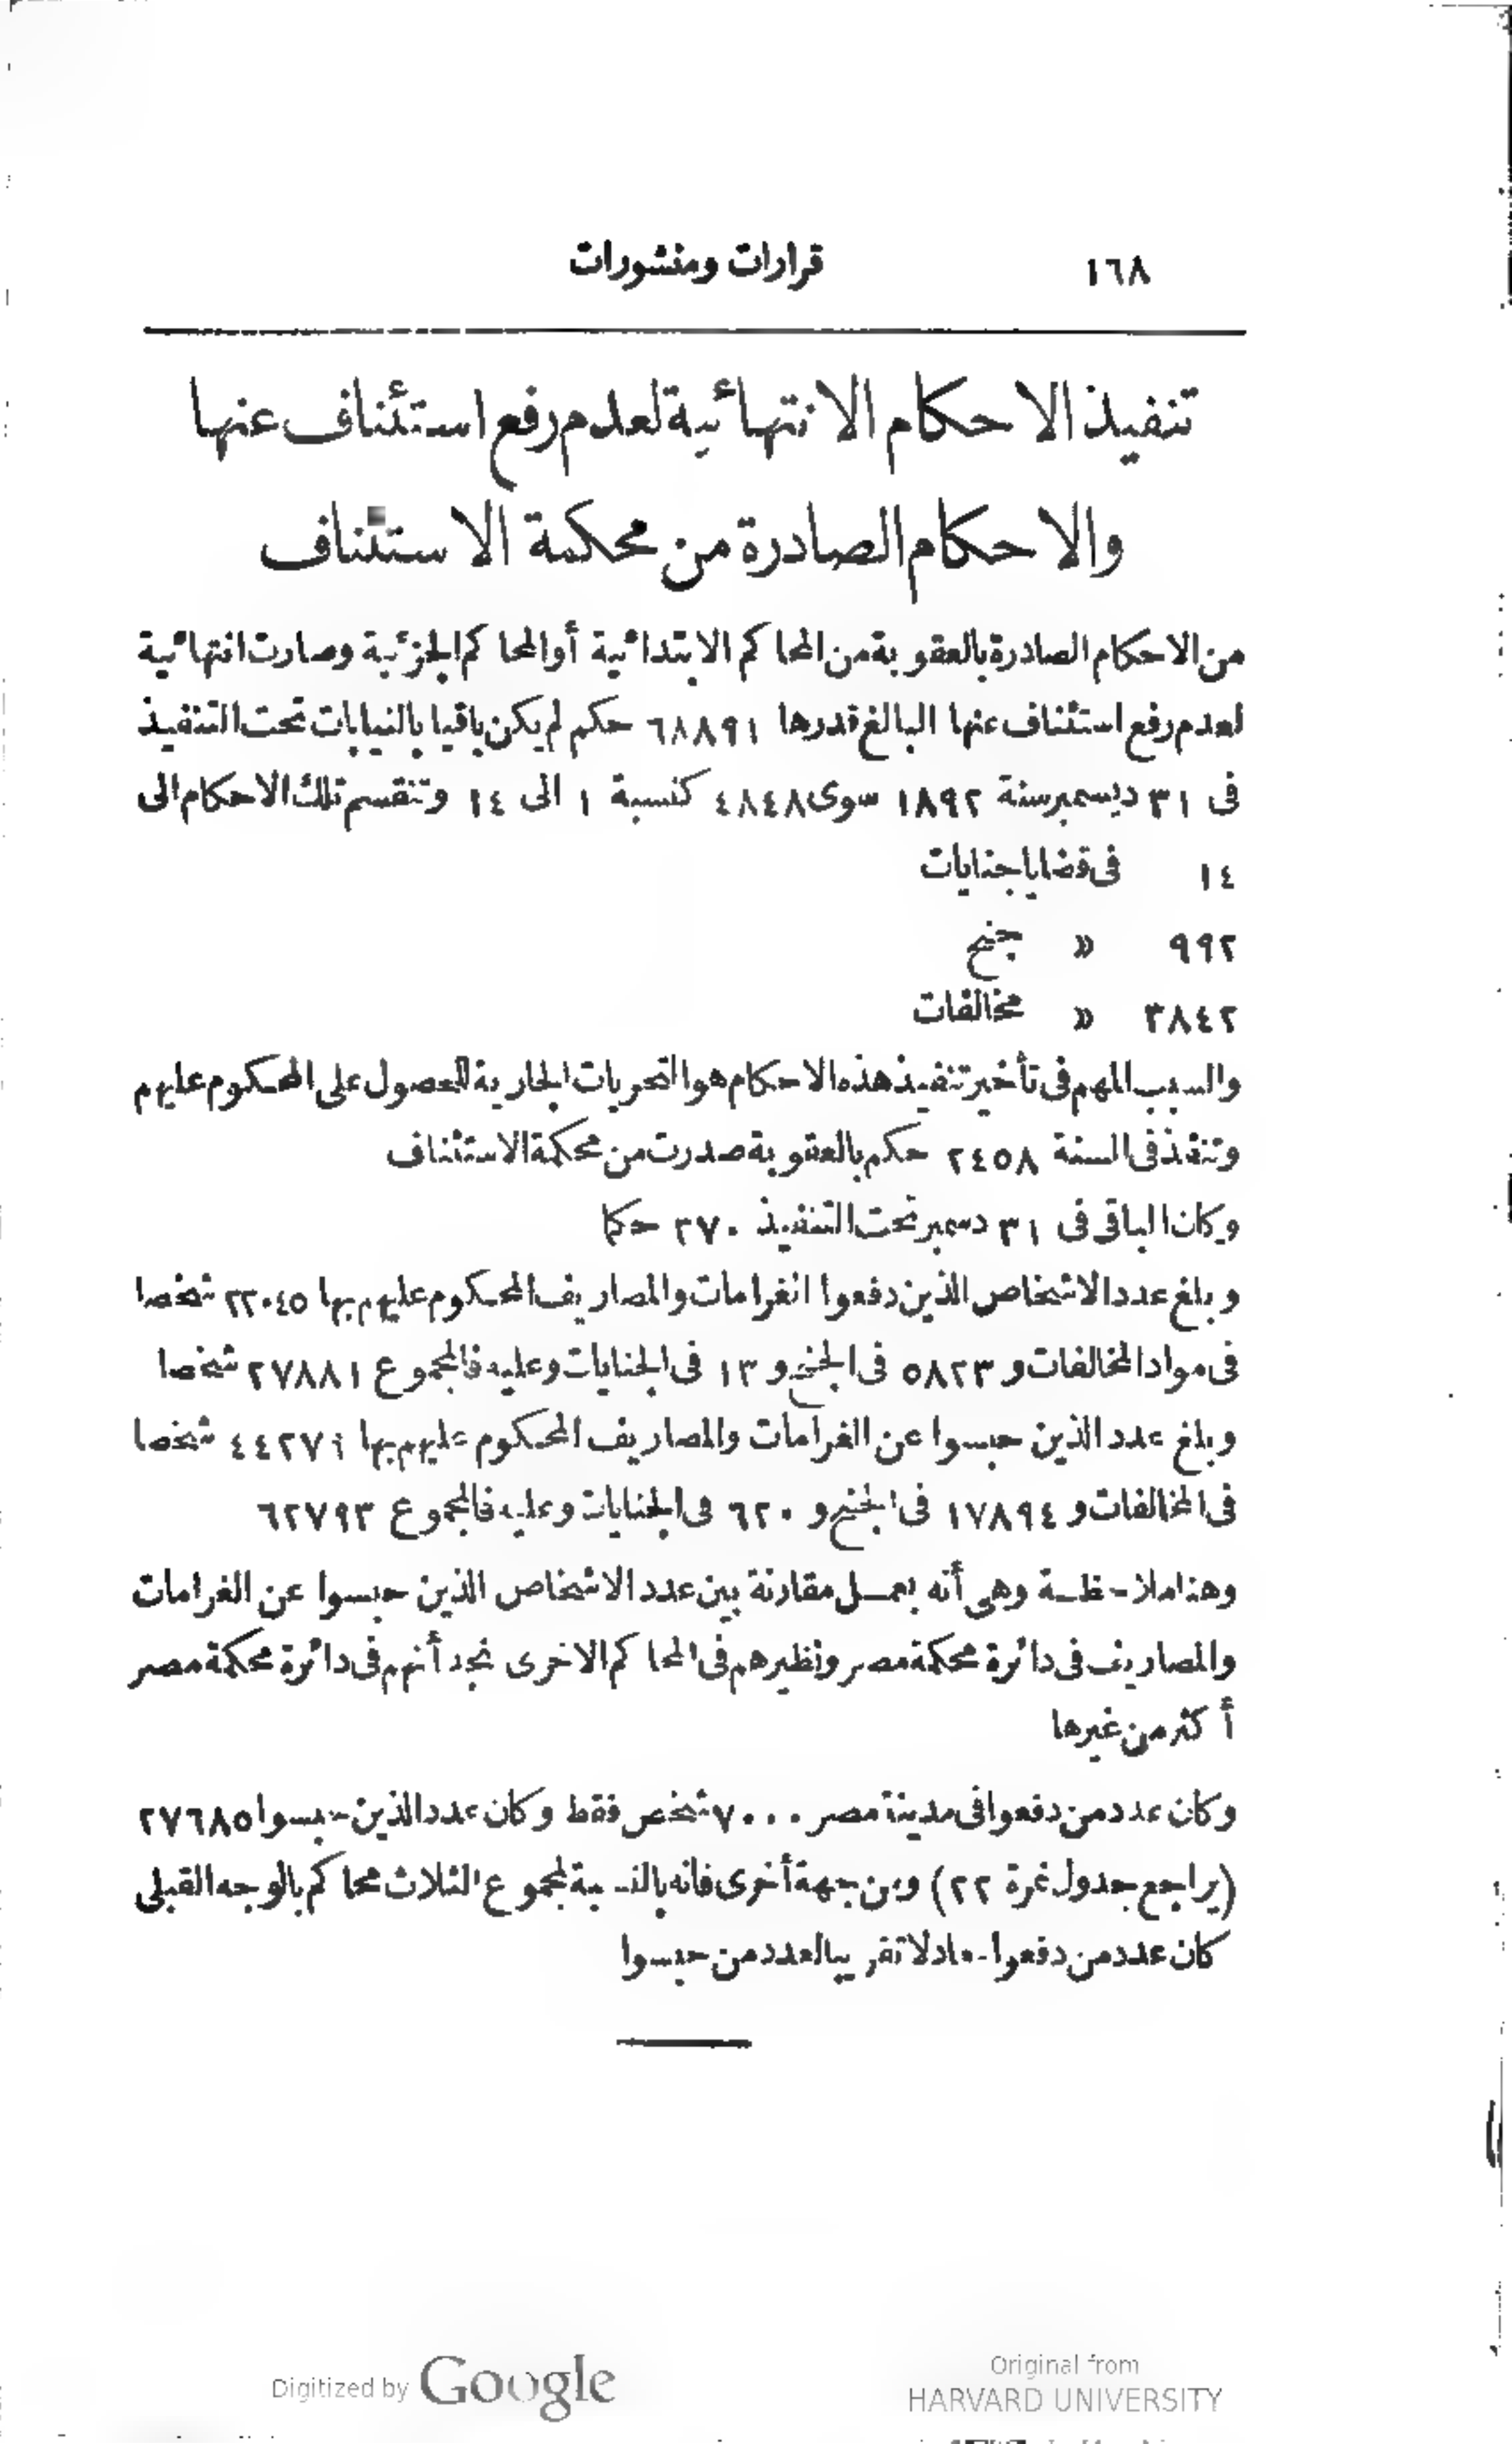 ١٦٨ قرارات ومنشورات
تنفيذ الاحكام الانتهائية لعدم رفع استئناف عنها
والاحكام الصادرة من محكمة الاستئناف
من الاحكام الصادرة بالعقوبة من المحاكم الابتدائية أو المحاكم الجزئية وصارت انتهائية
لعدم رفع استئناف عنها البالغ قدرها ٦٨٨٩١ حكم لم يكن باقيا بالنيابات تحت التنفيذ
فى ٣١ ديسمبر سنة ١٨٩٢ سوى ٤٨٤٨ كنسبة ١ الى ١٤ وتنقسم تلك الاحكام الى
١٤ فى قضايا جنايات
٩٩٢ » جنح
٣٨٤٢ » مخالفات
والسبب المهم فى تأخير تنفيذ هذه الاحكام هو التحريات الجارية للحصول على المحكوم عليهم
وتنفذ فى السنة ٢٤٥٨ حكم بالعقوبة صدرت من محكمة الاستئناف
وكان الباقى فى ٣١ دسمبر تحت التنفيذ ٢٧٠ حكما
وبلغ عدد الاشخاص الذين دفعوا الغرامات والمصاريف المحكوم عليهم بها ٢٢٠٤٥ شخصا
فى مواد المخالفات و ٥٨٢٣ فى الجنح و ١٣ فى الجنايات وعليه فالمجموع ٢٧٨٨١ شخصا
وبلغ عدد الذين حبسوا عن الغرامات والمصاريف المحكوم عليهم بها ٤٤٢٧٩ شخصا
فى المخالفات و ١٧٨٩٤ فى الجنح و ٦٢٠ فى الجنايات وعليه فالمجموع ٦٢٧٩٣
وهنا ملاحظة وهى أنه بعمل مقارنة بين عدد الاشخاص الذين حبسوا عن الغرامات
والمصاريف فى دائرة محكمة مصر ونظيرهم فى المحاكم الاخرى نجد أنهم فى دائرة محكمة مصر
أكثر من غيرها
وكان عدد من دفعوا فى مدينة مصر ٧٠٠٠ شخص فقط وكان عدد الذين حبسوا ٢٧٦٨٥
(يراجع جدول نمرة ٢٢) ومن جهة أخرى فانه بالنسبة لمجموع الثلاث محاكم بالوجه القبلى
كان عدد من دفعوا معادلا تقريبا لعدد من حبسوا
Digitized by Google
Original from
HARVARD UNIVERSITY